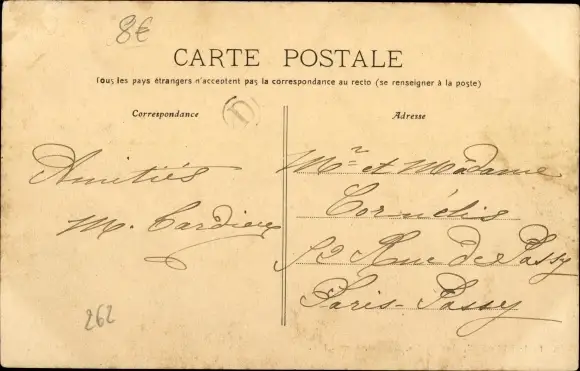 8€
CARTE POSTALE
Tous les pays étrangers n'acceptent pas la correspondance au recto (se renseigner à la poste)
Correspondance
D
Adresse
Amitiés
M. Cardieu
Mr et Madame
Cornélis
52 Rue de Passy
Paris-Passy
262